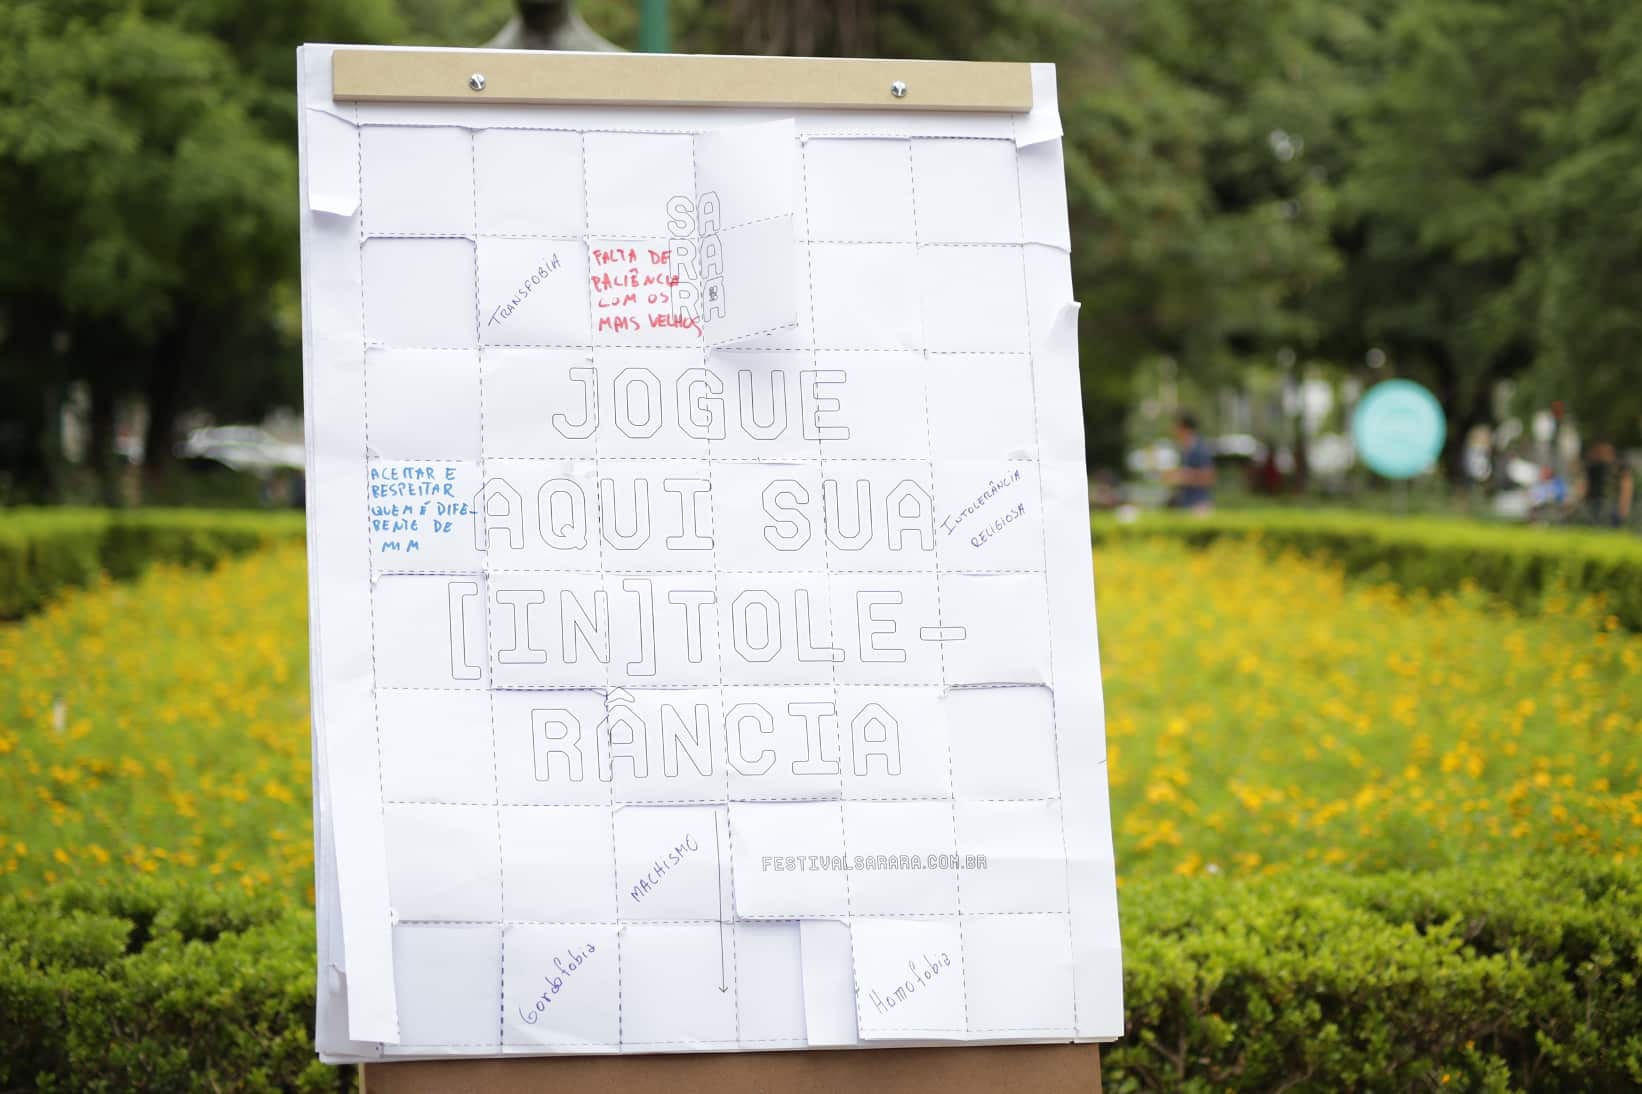 SA
RA
RA
TRANSFOBIA
FALTA DE
PACIÊNCIA
COM OS
MAIS VELHOS
JOGUE
ACEITAR E
RESPEITAR
QUEM É DIFE-
RENTE DE
MIM
AQUI SUA
INTOLERÂNCIA
RELIGIOSA
[IN]TOLE-
RÂNCIA
MACHISMO
FESTIVALSARARA.COM.BR
Gordofobia
Homofobia